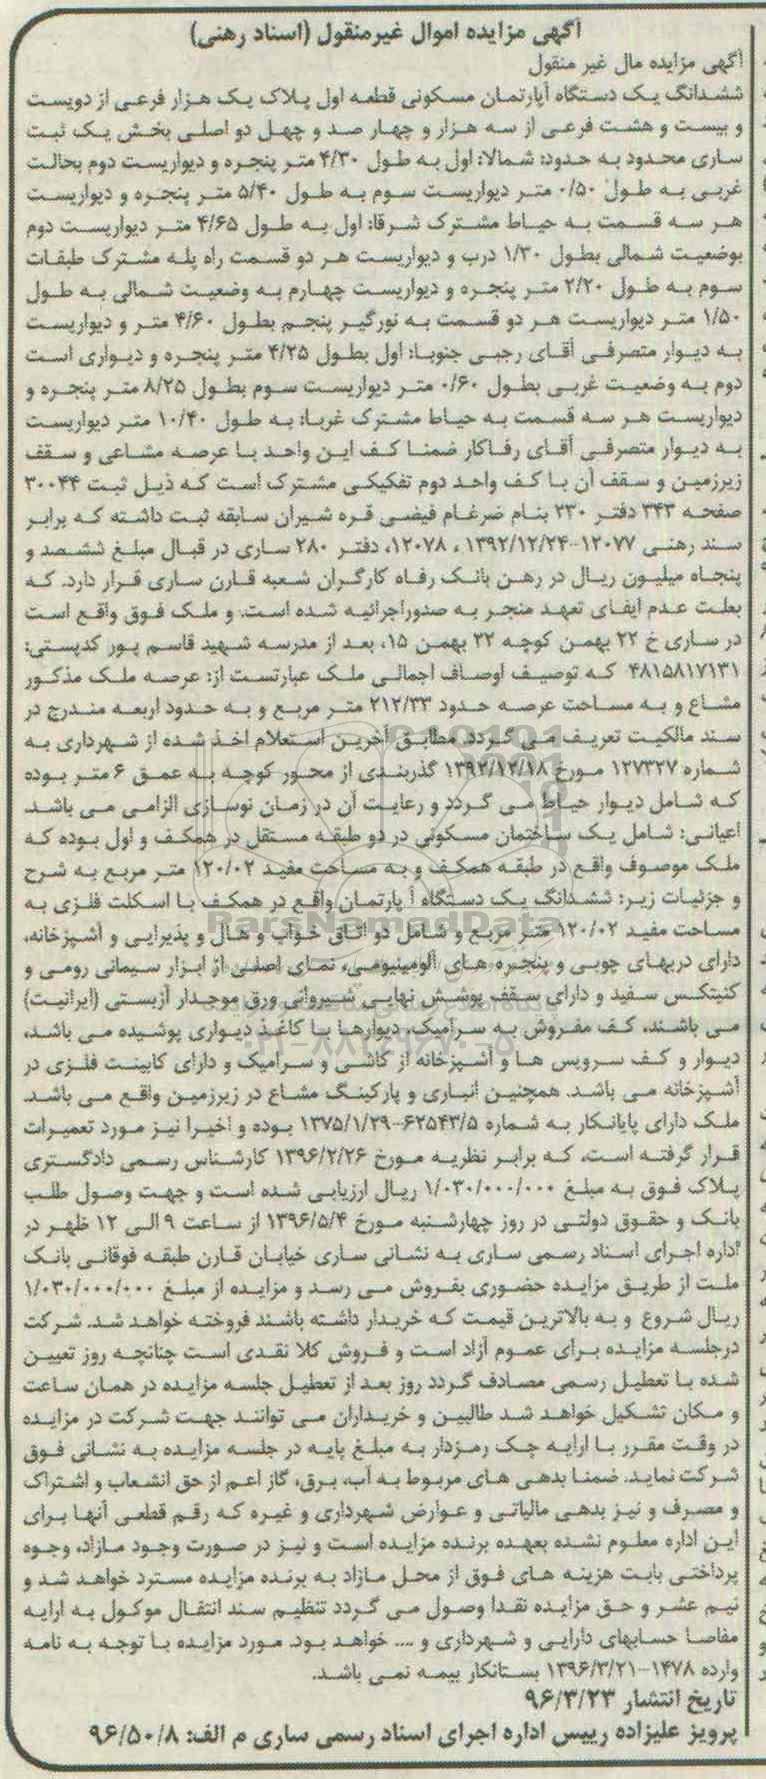 آگهی مزایده اموال غیرمنقول (اسناد رهنی)
آگهی مزایده مال غیر منقول
ششدانگ یک دستگاه آپارتمان مسکونی قطعه اول پلاک یک هزار فرعی از دویست
و بیست و هشت فرعی از سه هزار و چهار صد و چهل دو اصلی بخش یک ثبت
ساری محدود به حدود: شمالا: اول به طول ۴/۳۰ متر پنجره و دیواریست دوم بحالت
غربی به طول ۰/۵۰ متر دیواریست سوم به طول ۵/۴۰ متر پنجره و دیواریست
هر سه قسمت به حیاط مشترک شرقا: اول به طول ۴/۶۵ متر دیواریست دوم
بوضعیت شمالی بطول ۱/۳۰ درب و دیواریست هر دو قسمت راه پله مشترک طبقات
سوم به طول ۲/۲۰ متر پنجره و دیواریست چهارم به وضعیت شمالی به طول
۱/۵۰ متر دیواریست هر دو قسمت به نورگیر پنجم بطول ۴/۶۰ متر و دیواریست
به دیوار متصرفی آقای رجبی جنوبا: اول بطول ۴/۲۵ متر پنجره و دیواری است
دوم به وضعیت غربی بطول ۰/۶۰ متر دیواریست سوم بطول ۸/۲۵ متر پنجره و
دیواریست هر سه قسمت به حیاط مشترک غربا: به طول ۱۰/۴۰ متر دیواریست
به دیوار متصرفی آقای رفاکار ضمنا کف این واحد با عرصه مشاعی و سقف
زیرزمین و سقف آن با کف واحد دوم تفکیکی مشترک است که ذیل ثبت ۳۰۰۴۴
صفحه ۳۴۳ دفتر ۲۳۰ بنام ضرغام فیضی قره شیران سابقه ثبت داشته که برابر
سند رهنی ۱۲۰۷۷-۱۳۹۲/۱۲/۲۴ ، ۱۲۰۷۸، دفتر ۲۸۰ ساری در قبال مبلغ ششصد و
پنجاه میلیون ریال در رهن بانک رفاه کارگران شعبه قارن ساری قرار دارد. که
بعلت عدم ایفای تعهد منجر به صدوراجرائیه شده است. و ملک فوق واقع است
در ساری خ ۲۲ بهمن کوچه ۲۲ بهمن ۱۵، بعد از مدرسه شهید قاسم پور کدپستی:
۴۸۱۵۸۱۷۱۳۱ که توصیف اوصاف اجمالی ملک عبارتست از: عرصه ملک مذکور
مشاع و به مساحت عرصه حدود ۲۱۲/۳۳ متر مربع و به حدود اربعه مندرج در
سند مالکیت تعریف می گردد. مطابق آخرین استعلام اخذ شده از شهرداری به
شماره ۱۲۷۳۲۷ مورخ ۱۳۹۲/۱۲/۱۸ گذربندی از محور کوچه به عمق ۶ متر بوده
که شامل دیوار حیاط می گردد و رعایت آن در زمان نوسازی الزامی می باشد.
اعیانی: شامل یک ساختمان مسکونی در دو طبقه مستقل در همکف و اول بوده که
ملک موصوف واقع در طبقه همکف و به مساحت مفید ۱۲۰/۰۲ متر مربع به شرح
و جزئیات زیر: ششدانگ یک دستگاه آپارتمان واقع در همکف با اسکلت فلزی به
ParsNamadData
مساحت مفید ۱۲۰/۰۲ متر مربع و شامل دو اتاق خواب و هال و پذیرایی و آشپزخانه،
دارای دربهای چوبی و پنجره های آلومینیومی، نمای اصلی از ابزار سیمانی رومی و
کنیتکس سفید و دارای سقف پوشش نهایی شیروانی ورق موجدار آزبستی (ایرانیت)
می باشند، کف مفروش به سرامیک، دیوارها با کاغذ دیواری پوشیده می باشد،
دیوار و کف سرویس ها و آشپزخانه از کاشی و سرامیک و دارای کابینت فلزی در
آشپزخانه می باشد. همچنین انباری و پارکینگ مشاع در زیرزمین واقع می باشد.
ملک دارای پایانکار به شماره ۶۲۵۴۳/۵-۱۳۷۵/۱/۲۹ بوده و اخیرا نیز مورد تعمیرات
قرار گرفته است، که برابر نظریه مورخ ۱۳۹۶/۲/۲۶ کارشناس رسمی دادگستری
پلاک فوق به مبلغ ۱/۰۳۰/۰۰۰/۰۰۰ ریال ارزیابی شده است و جهت وصول طلب
بانک و حقوق دولتی در روز چهارشنبه مورخ ۱۳۹۶/۵/۴ از ساعت ۹ الی ۱۲ ظهر در
اداره اجرای اسناد رسمی ساری به نشانی ساری خیابان قارن طبقه فوقانی بانک
ملت از طریق مزایده حضوری بفروش می رسد و مزایده از مبلغ ۱/۰۳۰/۰۰۰/۰۰۰
ریال شروع و به بالاترین قیمت که خریدار داشته باشند فروخته خواهد شد. شرکت
درجلسه مزایده برای عموم آزاد است و فروش کلا نقدی است چنانچه روز تعیین
شده با تعطیل رسمی مصادف گردد روز بعد از تعطیل جلسه مزایده در همان ساعت
و مکان تشکیل خواهد شد طالبین و خریداران می توانند جهت شرکت در مزایده
در وقت مقرر با ارایه چک رمزدار به مبلغ پایه در جلسه مزایده به نشانی فوق
شرکت نماید. ضمنا بدهی های مربوط به آب، برق، گاز اعم از حق انشعاب و اشتراک
و مصرف و نیز بدهی مالیاتی و عوارض شهرداری و غیره که رقم قطعی آنها برای
این اداره معلوم نشده بعهده برنده مزایده است و نیز در صورت وجود مازاد، وجوه
پرداختی بابت هزینه های فوق از محل مازاد به برنده مزایده مسترد خواهد شد و
نیم عشر و حق مزایده نقدا وصول می گردد تنظیم سند انتقال موکول به ارایه
مفاصا حسابهای دارایی و شهرداری و .... خواهد بود. مورد مزایده با توجه به نامه
وارده ۱۴۷۸-۱۳۹۶/۳/۲۱ بستانکار بیمه نمی باشد.
تاریخ انتشار ۹۶/۳/۲۳
پرویز علیزاده رییس اداره اجرای اسناد رسمی ساری م الف: ۹۶/۵۰/۸